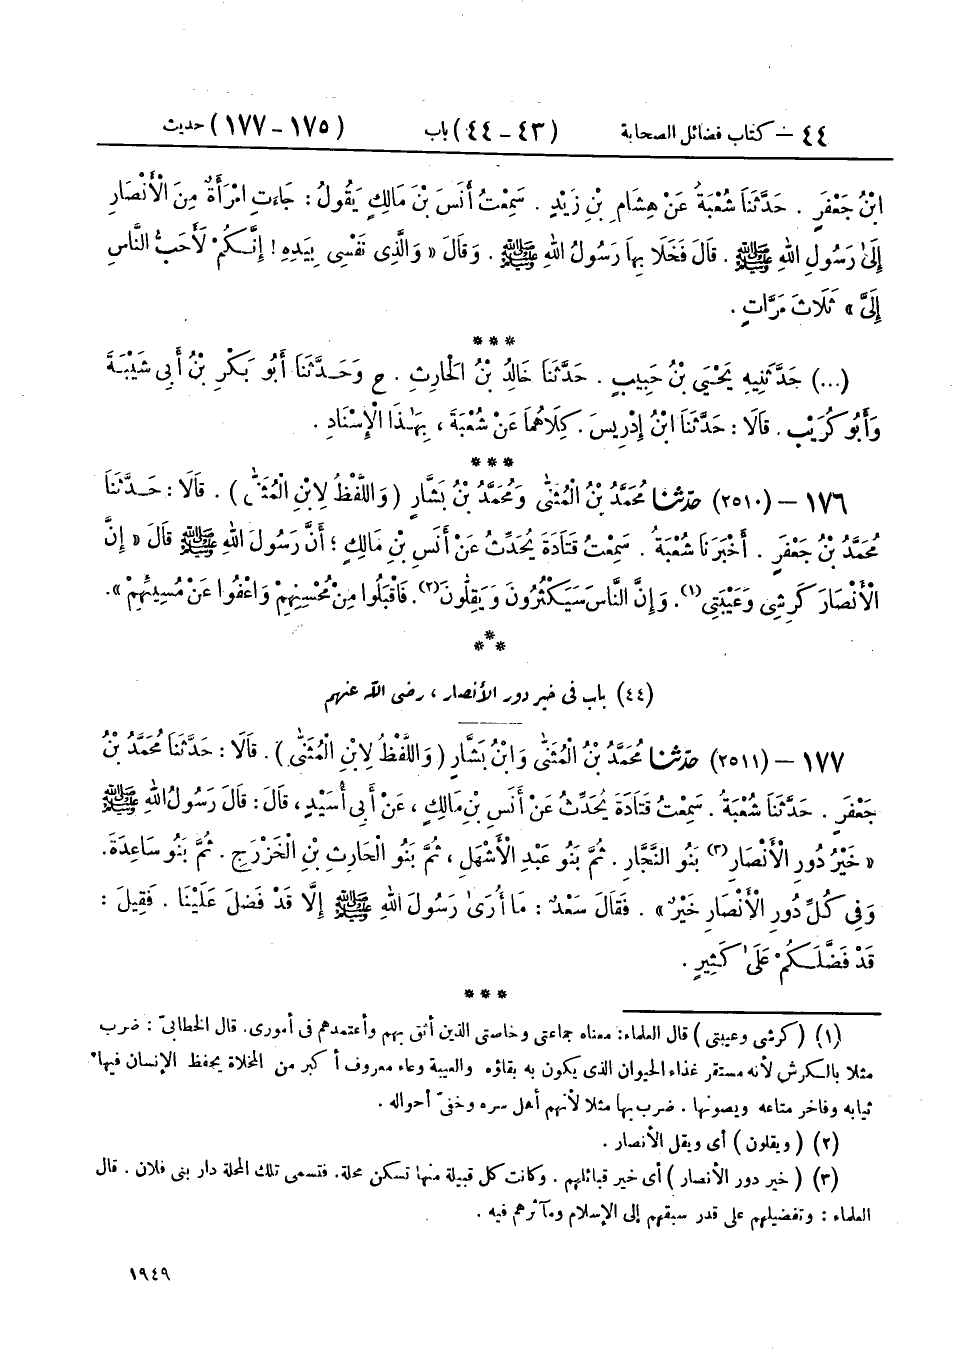 ٤٤ – كتاب فضائل الصحابة (٤٣ – ٤٤) باب (١٧٥ – ١٧٧) حديث
ابْنُ جَعْفَرٍ . حَدَّثَنَا شُعْبَةُ عَنْ هِشَامِ بْنِ زَيْدٍ . سَمِعْتُ أَنَسَ بْنَ مَالِكٍ يَقُولُ : جَاءَتِ امْرَأَةٌ مِنَ الْأَنْصَارِ
إِلَىٰ رَسُولِ اللهِ ﷺ . قَالَ فَخَلَا بِهَا رَسُولُ اللهِ ﷺ . وَقَالَ « وَالَّذِى نَفْسِى بِيَدِهِ ! إِنَّكُمْ لَأَحَبُّ النَّاسِ
إِلَىَّ » ثَلَاثَ مَرَّاتٍ .
***
(...) حَدَّثَنِيهِ يَحْيَى بْنُ حَبِيبٍ . حَدَّثَنَا خَالِدُ بْنُ الْحَارِثِ . ح وَحَدَّثَنَا أَبُو بَكْرِ بْنُ أَبِى شَيْبَةَ
وَأَبُو كُرَيْبٍ . قَالَا : حَدَّثَنَا ابْنُ إِدْرِيسَ . كِلَاهُمَا عَنْ شُعْبَةَ ، بِهَٰذَا الْإِسْنَادِ .
***
١٧٦ – (٢٥١٠) حدثنا مُحَمَّدُ بْنُ الْمُثَنَّىٰ وَمُحَمَّدُ بْنُ بَشَّارٍ ( وَاللَّفْظُ لِابْنِ الْمُثَنَّىٰ ) . قَالَا : حَدَّثَنَا
مُحَمَّدُ بْنُ جَعْفَرٍ . أَخْبَرَنَا شُعْبَةُ . سَمِعْتُ قَتَادَةَ يُحَدِّثُ عَنْ أَنَسِ بْنِ مَالِكٍ ؛ أَنَّ رَسُولَ اللهِ ﷺ قَالَ « إِنَّ
الْأَنْصَارَ كَرِشِى وَعَيْبَتِى (١). وَإِنَّ النَّاسَ سَيَكْثُرُونَ وَيَقِلُّونَ (٢). فَاقْبَلُوا مِنْ مُحْسِنِهِمْ وَاعْفُوا عَنْ مُسِيئِهِمْ ».
***
(٤٤) باب فى خير دور الأنصار ، رضى الله عنهم
١٧٧ – (٢٥١١) حدثنا مُحَمَّدُ بْنُ الْمُثَنَّىٰ وَابْنُ بَشَّارٍ ( وَاللَّفْظُ لِابْنِ الْمُثَنَّىٰ ) . قَالَا : حَدَّثَنَا مُحَمَّدُ بْنُ
جَعْفَرٍ . حَدَّثَنَا شُعْبَةُ . سَمِعْتُ قَتَادَةَ يُحَدِّثُ عَنْ أَنَسِ بْنِ مَالِكٍ ، عَنْ أَبِى أُسَيْدٍ ، قَالَ : قَالَ رَسُولُ اللهِ ﷺ
« خَيْرُ دُورِ الْأَنْصَارِ (٣) بَنُو النَّجَّارِ . ثُمَّ بَنُو عَبْدِ الْأَشْهَلِ ، ثُمَّ بَنُو الْحَارِثِ بْنِ الْخَزْرَجِ . ثُمَّ بَنُو سَاعِدَةَ .
وَفِى كُلِّ دُورِ الْأَنْصَارِ خَيْرٌ » . فَقَالَ سَعْدٌ : مَا أُرَىٰ رَسُولَ اللهِ ﷺ إِلَّا قَدْ فَضَّلَ عَلَيْنَا . فَقِيلَ :
قَدْ فَضَّلَكُمْ عَلَىٰ كَثِيرٍ .
***
(١) ( كرشى وعيبتى ) قال العلماء : معناه جماعتى وخاصتى الذين أثق بهم وأعتمدهم فى أمورى. قال الخطابىّ : ضرب
مثلا بالكرش لأنه مستقر غذاء الحيوان الذى يكون به بقاؤه والعيبة وعاء معروف أكبر من المخلاة يحفظ الإنسان فيها
ثيابه وفاخر متاعه ويصونها . ضرب بها مثلا لأنهم أهل سره وخفىّ أحواله .
(٢) ( ويقلون ) أى ويقل الأنصار .
(٣) ( خير دور الأنصار ) أى خير قبائلهم . وكانت كل قبيلة منها تسكن محلة. فتسمى تلك المحلة دار بنى فلان . قال
العلماء : وتفضيلهم على قدر سبقهم إلى الإسلام ومآثرهم فيه .
١٩٤٩